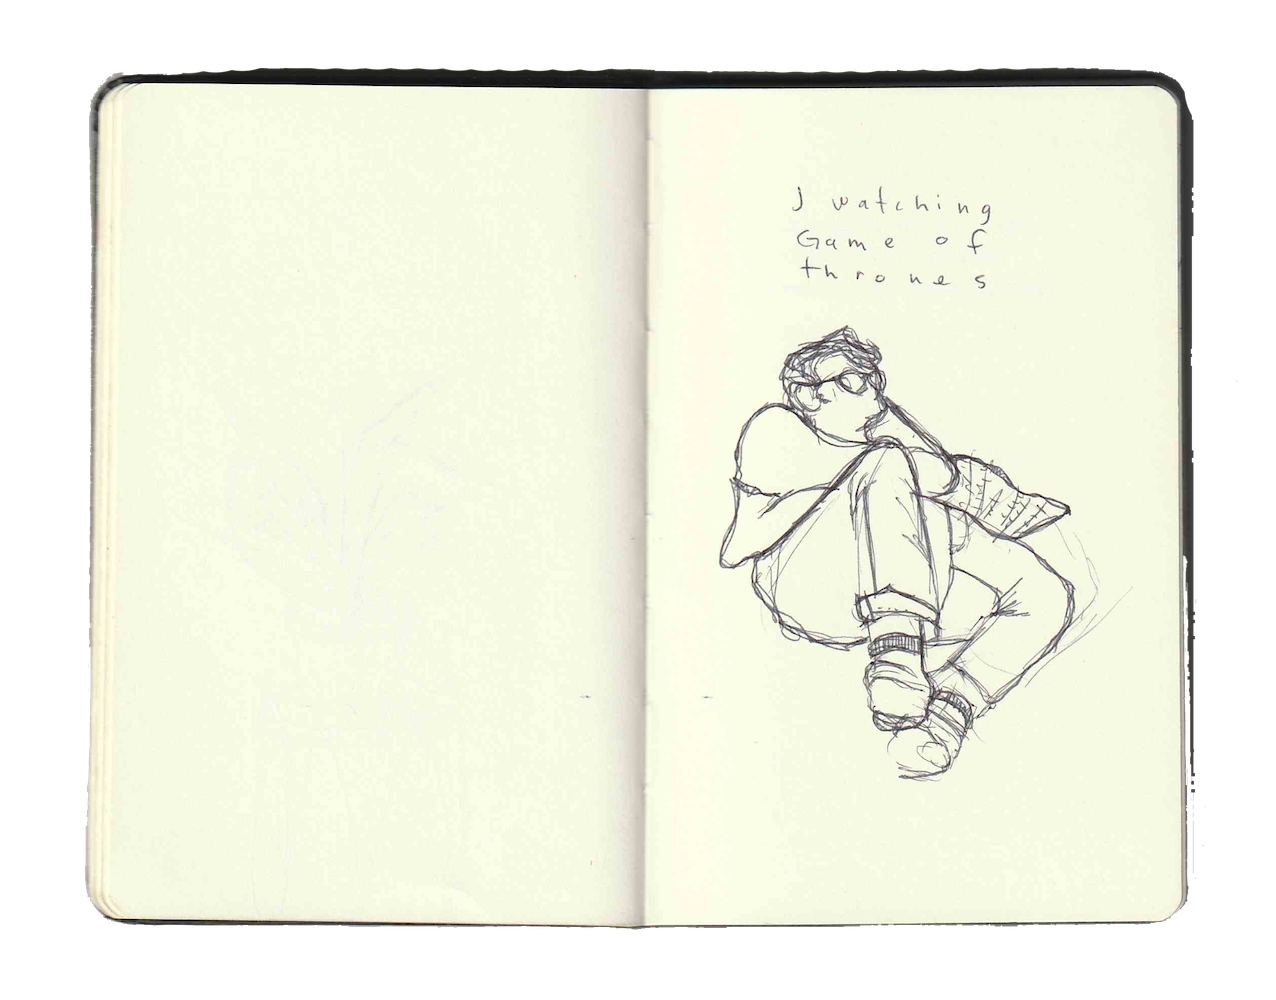 J watching
Game of
thrones